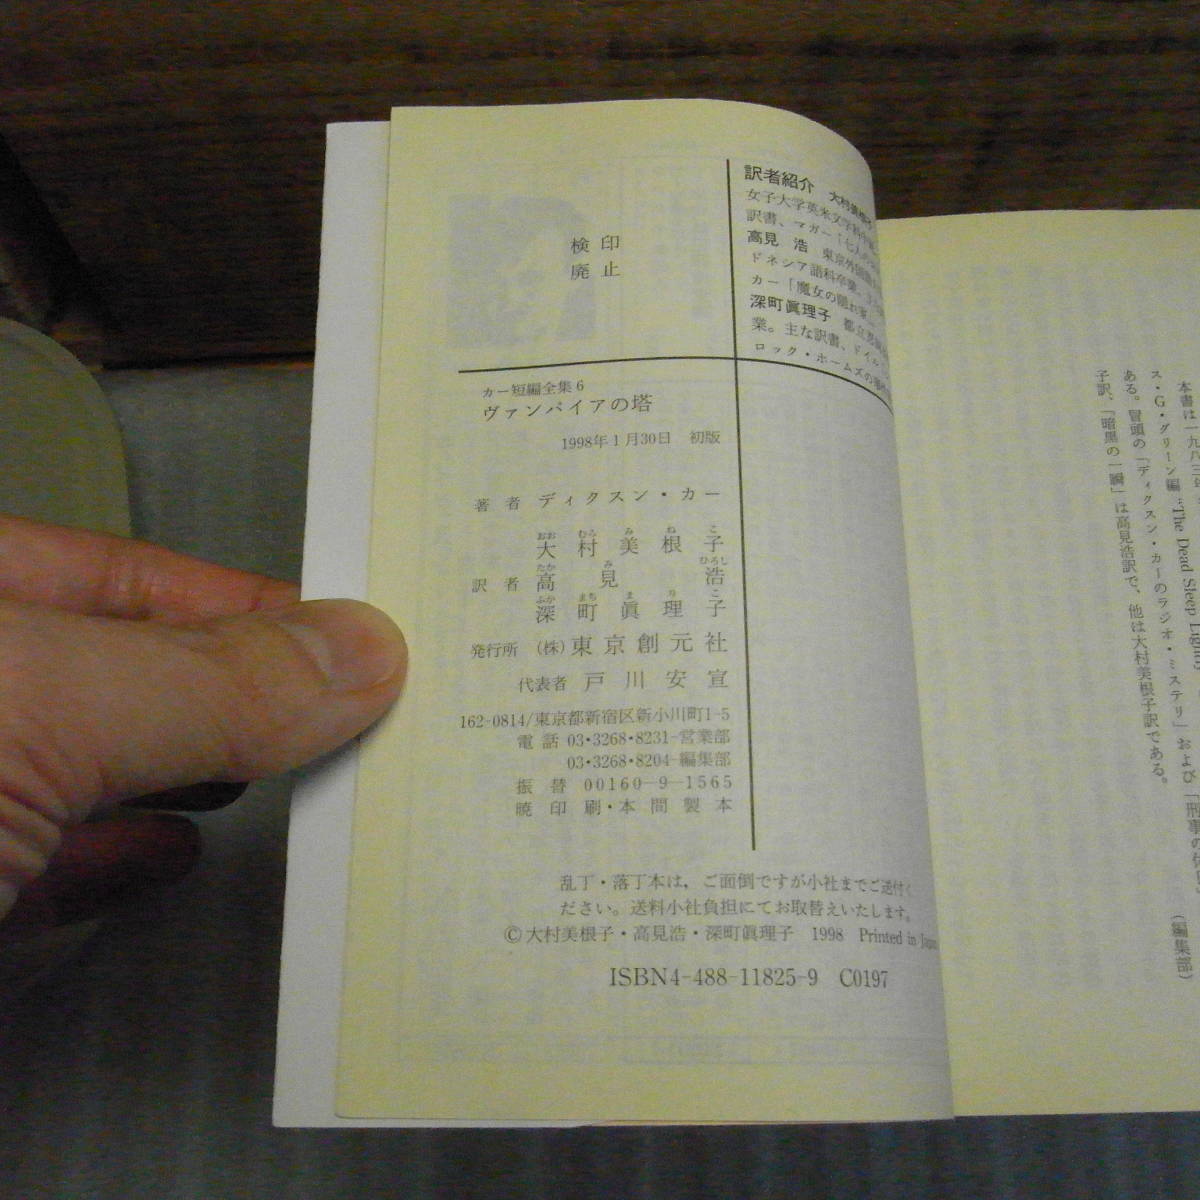 検印
廃止
訳者紹介 大村美根子
女子大学英米文学科卒業
訳書、マガー「七人の
高見 浩 東京外国語
ドネシア語科卒業。主な
カー「魔女の隠れ家」
深町眞理子 都立忍岡
業。主な訳書、ドイル
ロック・ホームズの
カー短編全集6
ヴァンパイアの塔
1998年1月30日 初版
著者 ディクスン・カー
大村美根子
おおむらみねこ
訳者 高見浩
たかみひろし
深町眞理子
ふかまちまりこ
発行所 (株)東京創元社
代表者 戸川安宣
162-0814/東京都新宿区新小川町1-5
電話 03・3268・8231-営業部
03・3268・8204-編集部
振替 00160-9-1565
暁印刷・本間製本
乱丁・落丁本は，ご面倒ですが小社までご送付く
ださい。送料小社負担にてお取替えいたします。
©大村美根子・高見浩・深町眞理子 1998 Printed in Japan
ISBN4-488-11825-9 C0197
本書は一九八三年
ス・G・グリーン編 “The Dead Sleep Lightly
ある。冒頭の「ディクスン・カーのラジオ・ミステリ」および「刑事の
子訳、「暗黒の一瞬」は高見浩訳で、他は大村美根子訳である。
(編集部)